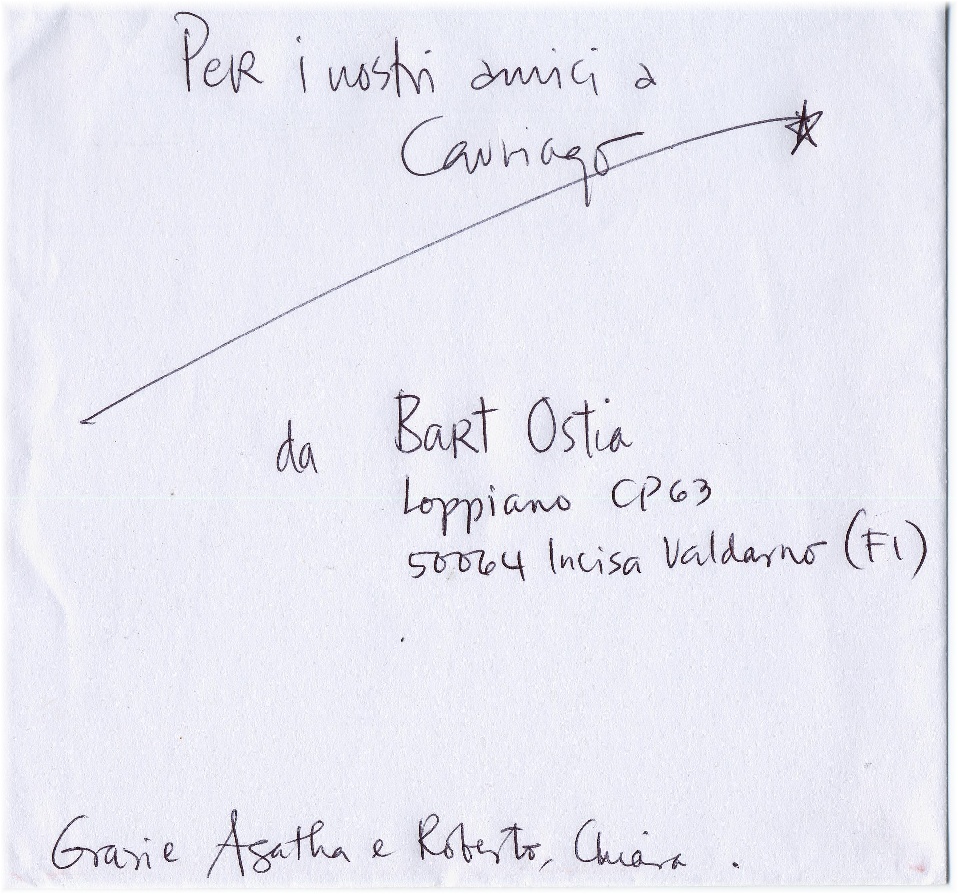 Per i nostri amici a
Cavriago
da Bart Ostia
Loppiano CP63
50064 Incisa Valdarno (FI)
Grazie Agatha e Roberto, Chiara .